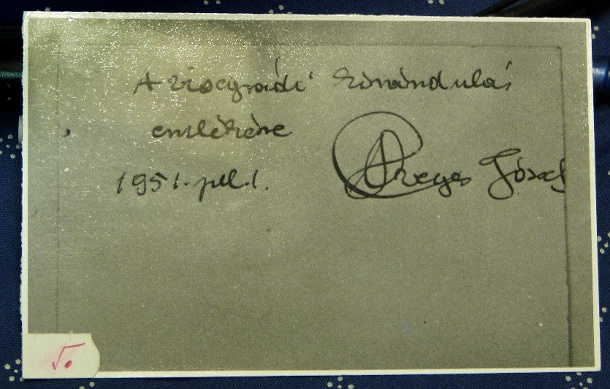 A visegrádi kirándulás
emlékére
1951. júl. 1. Öreges József